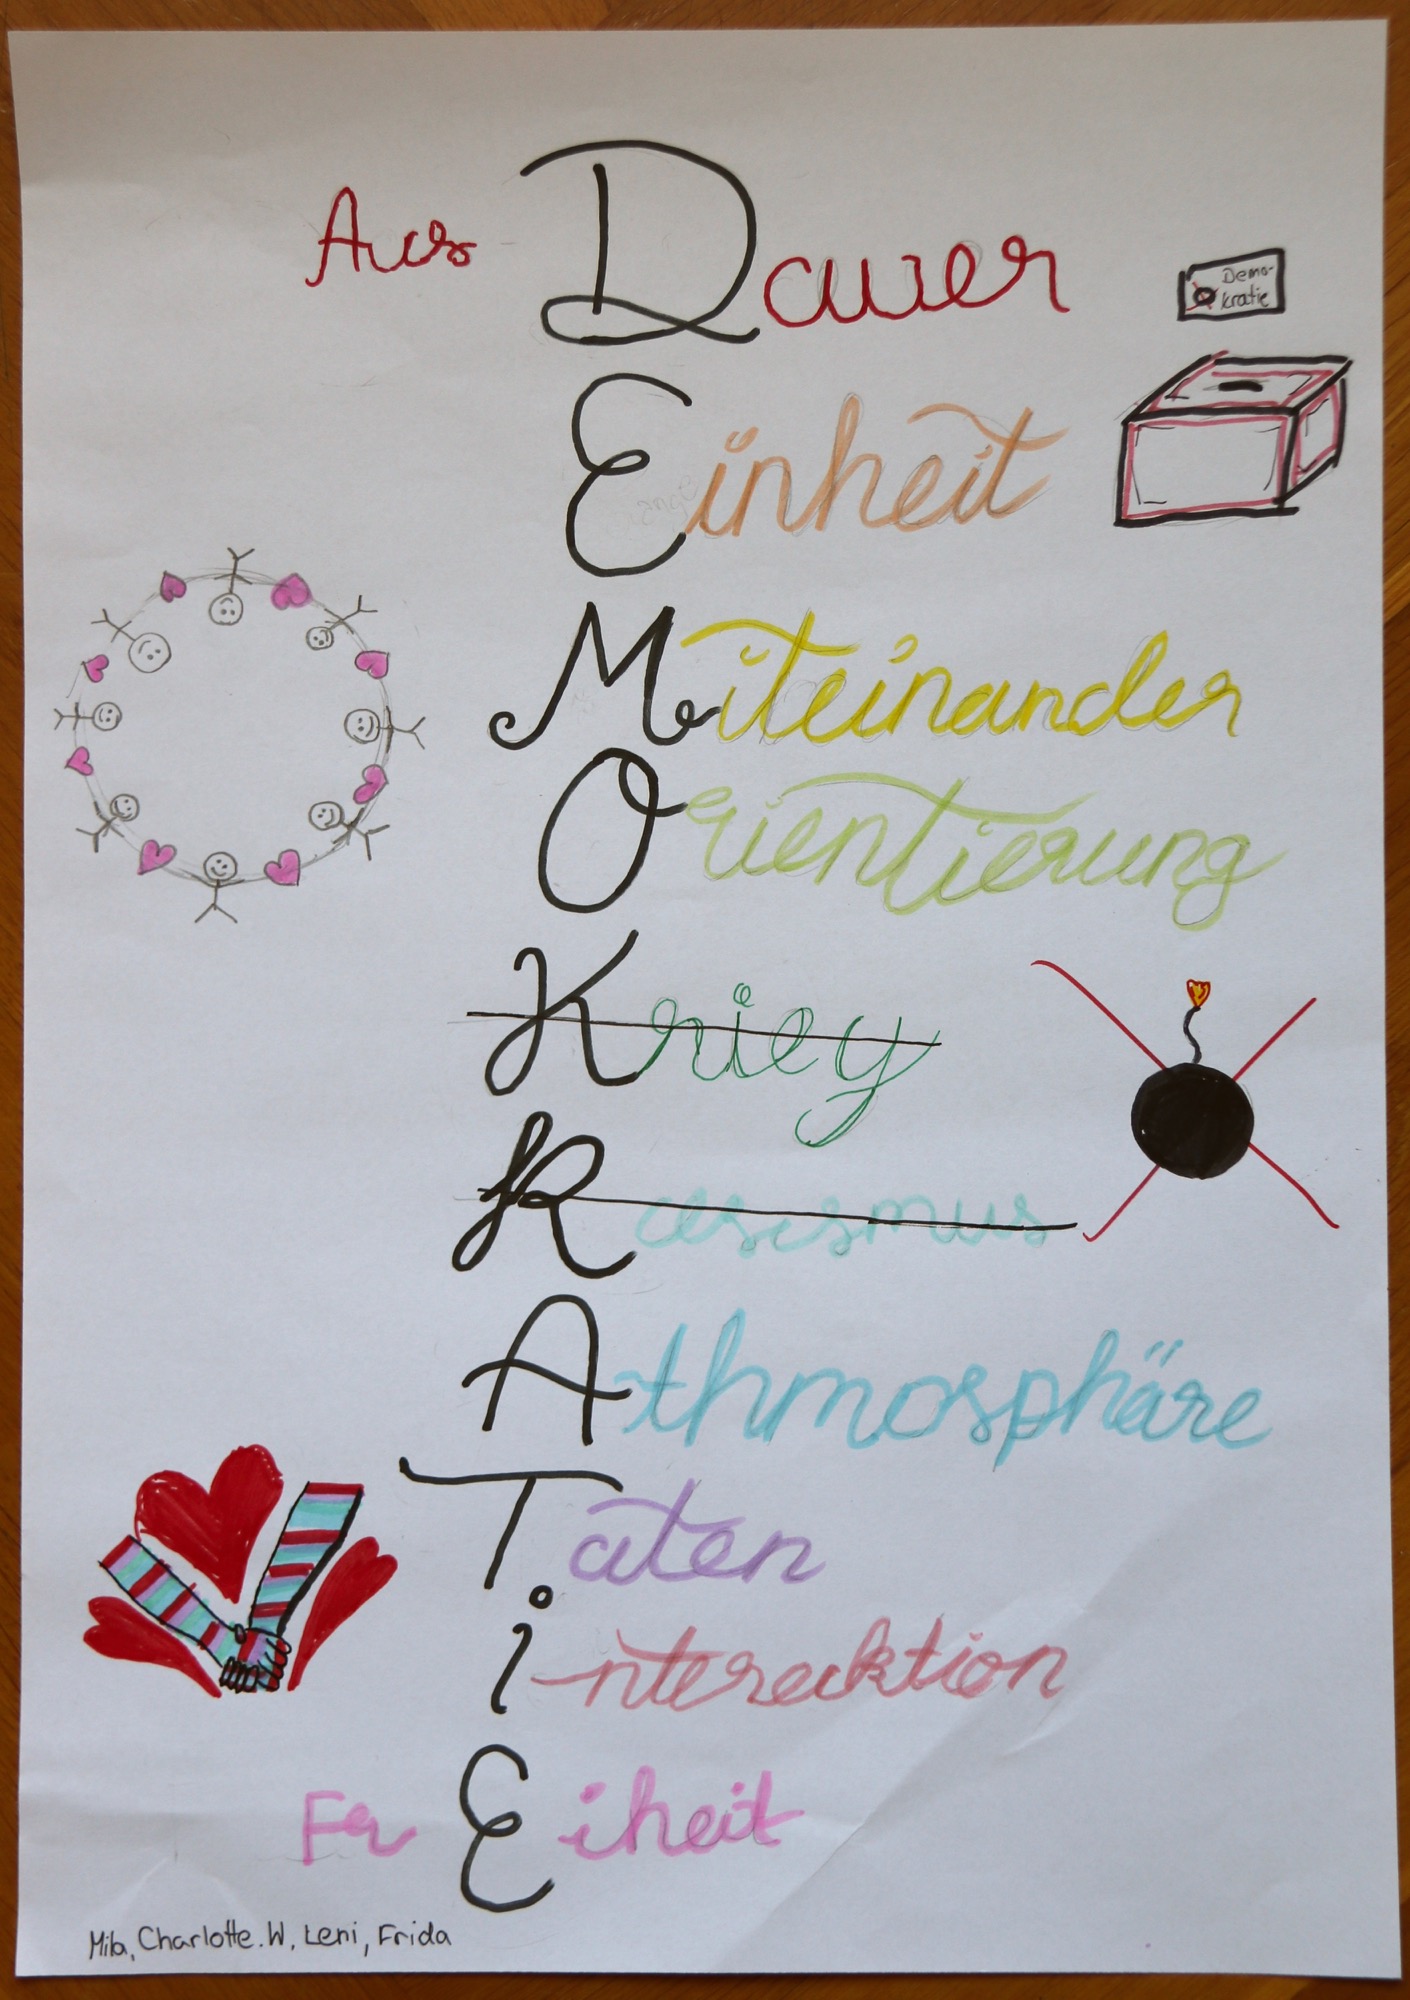 AusDauer
Demo-
kratie
Einheit
Miteinander
Orientierung
Krieg
Rasismus
Athmosphäre
Taten
interacktion
FrEiheit
Mila, Charlotte.W, Leni, Frida